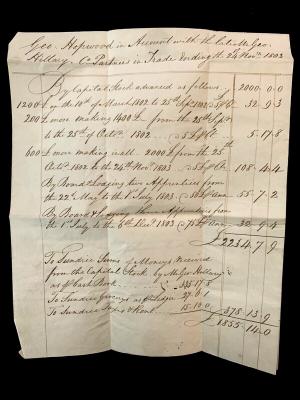 Geo. Hopwood in Account with the late Mr Geo.
Hillary, Co Partners in Trade Ending the 24 Novr. 1803
By Capital Stock advanced as follows 2000.0.0
1200£ on the 10th of March 1802 to 25th Sept 1802 @ 5 £ Ct. 32.9.3
200£ more making 1400£ from the 25th Sept.
to the 25th of Octr. 1802 @ 5 £ Ct. 5.17.8
600£ more making in all 2000£ from the 25th
Octr. 1802 to the 24th Novr. 1803 @ 5 £ Ct. 108.4.4
By Board & Lodging two Apprentices from
the 22d May to the 1st July 1803 55.7.2
By Board & Lodging three Apprentices from
the 1st July to the 6th Decr. 1803 32.9.4
£ 2234.7.9
To Sundrie Sums of Moneys Received
from the Capital Stock by Mr Geo. Hillary
as of Cash Book 335.17.8
To Sundrie Groceries as of Ledger 27.6.1
To Sundrie & Rent 15.10.0
378.13.9
£ 1855.14.0